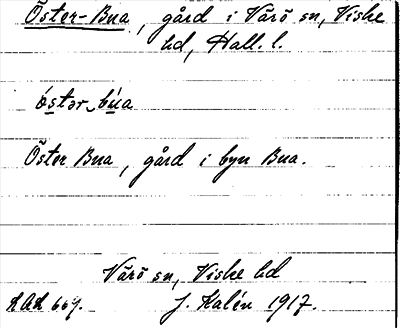 Öster-Bua, gård i Värö sn, Viske
hd, Hall. l.
óstər-bu̇a
Öster Bua, gård i byn Bua.
Värö sn, Viske hd
J. Kalén 1917.